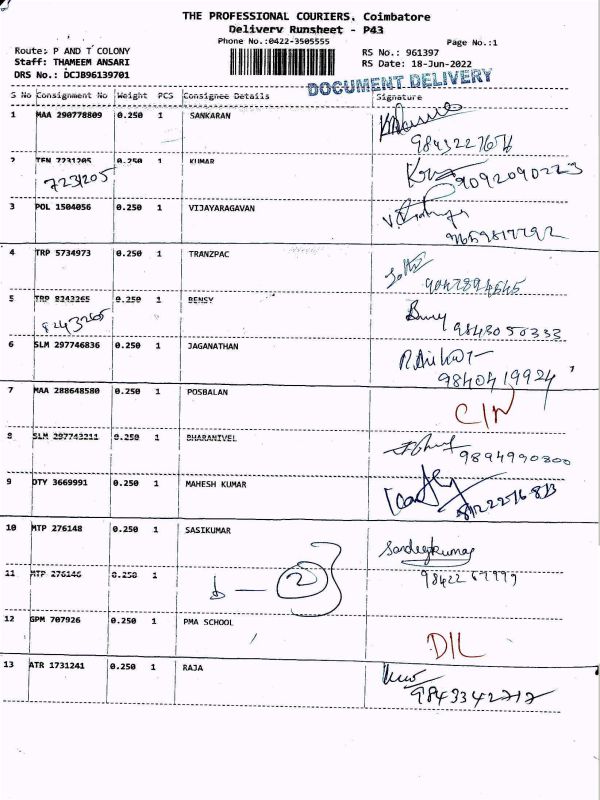 THE PROFESSIONAL COURIERS. Coimbatore
Delivery Runsheet - P43
Phone No.:0422-3505555
Page No.:1
Route: P AND T COLONY
RS No.: 961397
Staff: THAMEEM ANSARI
RS Date: 18-Jun-2022
DRS No.: DCJB96139701
DOCUMENT DELIVERY
S No Consignment No Weight PCS Consignee Details Signature
1 MAA 290778809 0.250 1 SANKARAN
9843227676
2 TEN 7231205 0.250 1 KUMAR
7231205
9092090223
3 POL 1504056 0.250 1 VIJAYARAGAVAN
4 TRP 5734973 0.250 1 TRANZPAC
5 TRP 8243265 0.250 1 BENSY
8243265
9843050333
6 SLM 297746836 0.250 1 JAGANATHAN
9840419924
7 MAA 288648580 0.250 1 POSBALAN
8 SLM 297743211 0.250 1 BHARANIVEL
9894990800
9 DTY 3669991 0.250 1 MAHESH KUMAR
10 MTP 276148 0.250 1 SASIKUMAR
11 MTP 276146 0.250 1
2
12 GPM 707926 0.250 1 PMA SCHOOL
D/L
13 ATR 1731241 0.250 1 RAJA
9843342717